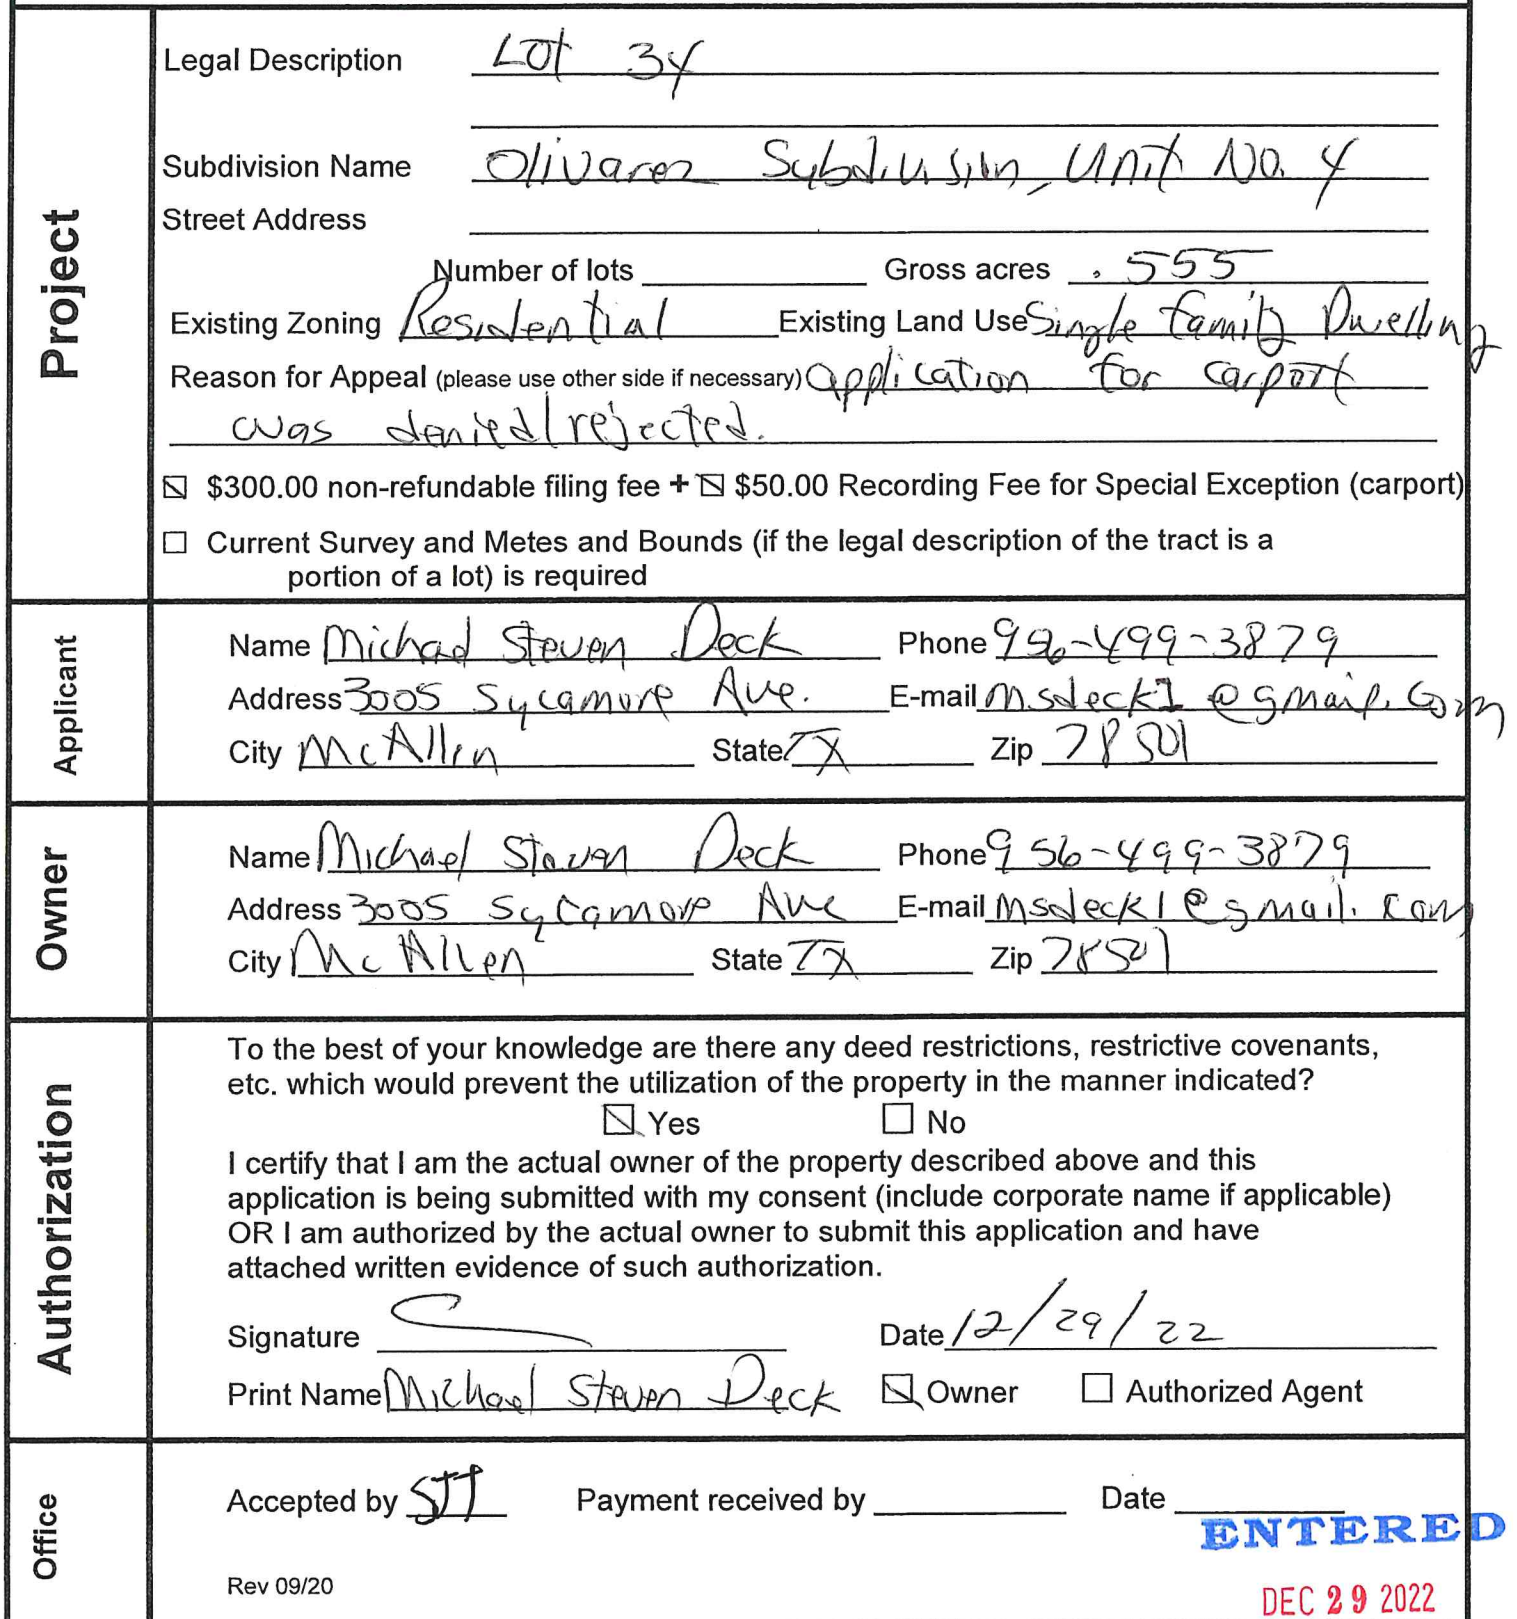 Project
Legal Description Lot 34
Subdivision Name Olivarez Subdivision, Unit No. 4
Street Address
Number of lots Gross acres .555
Existing Zoning Residential Existing Land Use Single family Dwelling
Reason for Appeal (please use other side if necessary) Application for carport
was denied/rejected.
☒ $300.00 non-refundable filing fee + ☒ $50.00 Recording Fee for Special Exception (carport)
☐ Current Survey and Metes and Bounds (if the legal description of the tract is a
portion of a lot) is required
Applicant
Name Michael Steven Deck Phone 956-499-3879
Address 3005 Sycamore Ave. E-mail msdeck1@gmail.com
City McAllen State TX Zip 78501
Owner
Name Michael Steven Deck Phone 956-499-3879
Address 3005 Sycamore Ave E-mail msdeck1@gmail.com
City McAllen State TX Zip 78501
Authorization
To the best of your knowledge are there any deed restrictions, restrictive covenants,
etc. which would prevent the utilization of the property in the manner indicated?
☒ Yes ☐ No
I certify that I am the actual owner of the property described above and this
application is being submitted with my consent (include corporate name if applicable)
OR I am authorized by the actual owner to submit this application and have
attached written evidence of such authorization.
Signature Date 12/29/22
Print Name Michael Steven Deck ☒ Owner ☐ Authorized Agent
Office
Accepted by Payment received by Date
ENTERED
Rev 09/20
DEC 29 2022